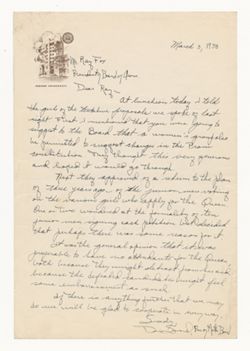 March 3, 1938
Mr. Ray Fox
President, Board of
Dear Ray —
At luncheon today, I told
the girls of the proposals we spoke of last
night. First I mentioned that you were going to
suggest to the Board that a women's group also
be permitted to suggest changes in the
constitution. They thought this very generous
and hoped it would go through.
Next they approved of a return to the plan
of three years ago, of the Junior men voting
on the various girls who apply for the Queen.
One or two wondered at the formality of ten
junior men signing each petition but decided
that perhaps there was some reason for it.
It was the general opinion that it was
preferable to have no attendants for the Queen,
both because they might detract from her and
because the defeated candidates might feel
some embarrassment as such.
If there is anything further that we may
do we will be glad to cooperate in any way.
Sincerely